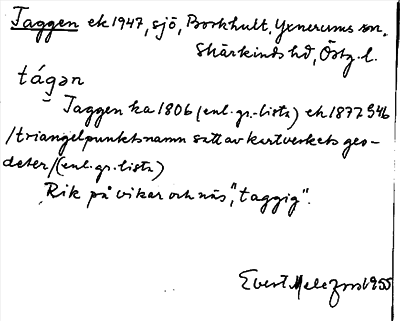 Taggen ek 1947, sjö, Borkhult, Yxnerums sn.
Skärkinds hd, Östg. l.
tágən
Taggen ka 1806 (enl. gr. lista) ek 1877 S46
/triangelpunktsnamn satt av kartverkets geo-
deter/ (enl. gr. lista)
Rik på vikar och näs, "taggig".
Evert Melefors 1955